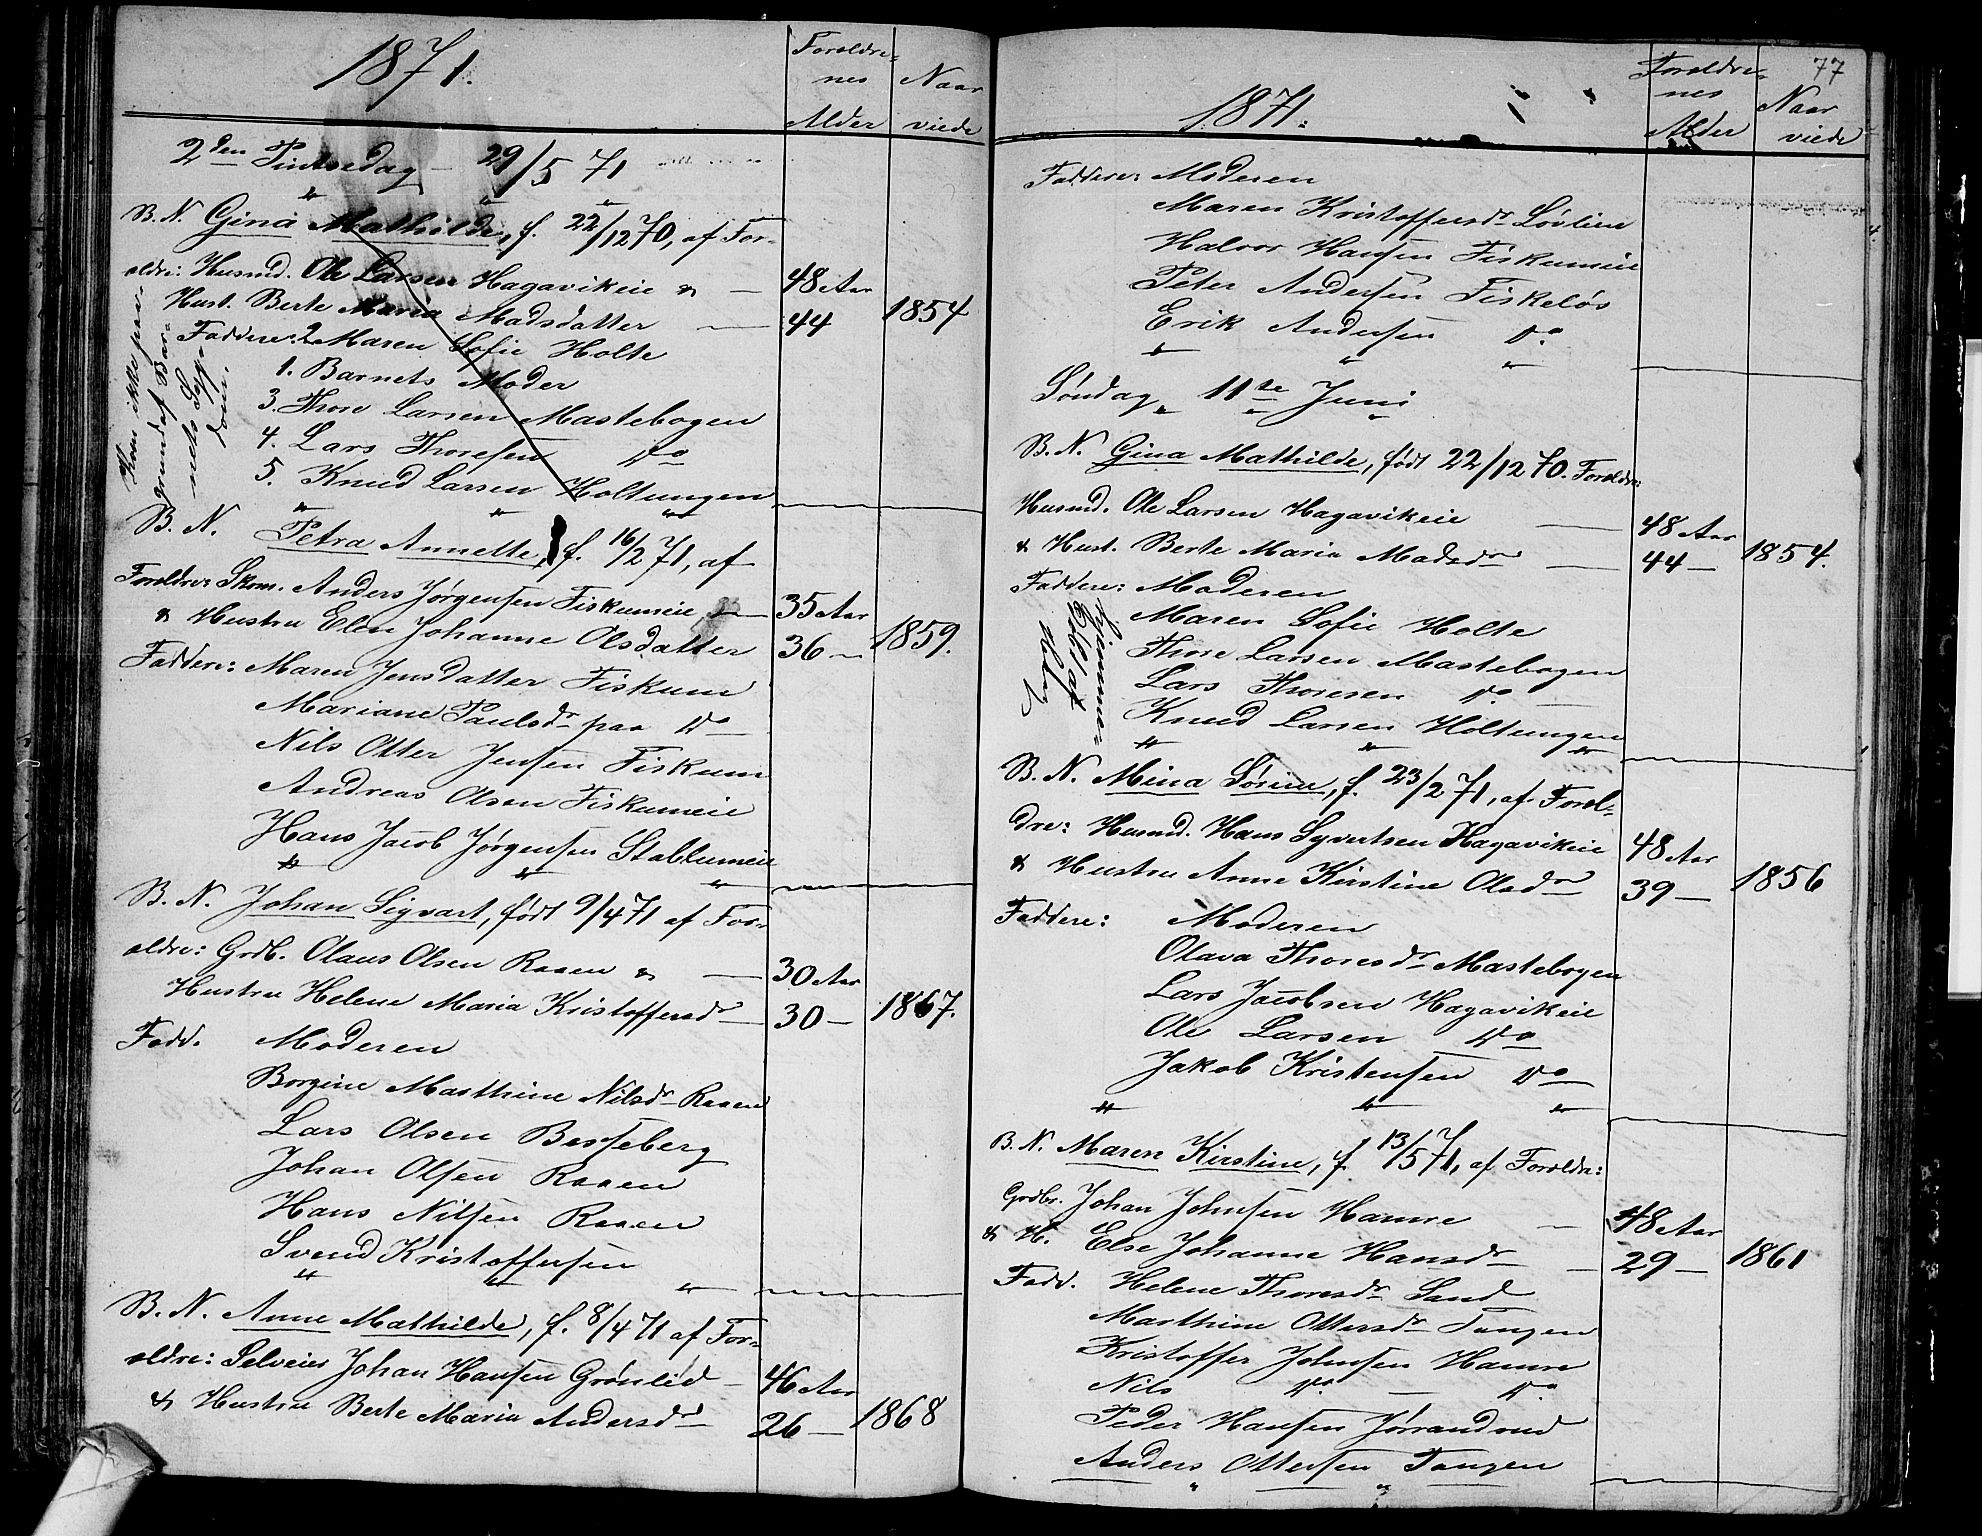 1871.
Forældre-
nes
Alder
Naar
viede
2den Pintsedag - 29/5 71
B. N. Gina Mathilde, f. 22/12 70, af For-
ældre: Husmd. Ole Larsen Hagavikeie & — 48 Aar
Hust. Berte Maria Madsdatter — 44 1854
Faddere: 2 Maren Sofie Holte
1. Barnets Moder
3. Thore Larsen Mastebogen
4. Lars Thoresen Do
5. Knud Larsen Holtungen
Kom ikke paa
grund af Bar-
nets Syg-
dom.
B. N. Petra Annette, f. 16/2 71, af
Forældre: Skom. Anders Jørgensen Fiskumeie — 35 Aar
& Hustru Elen Johanne Olsdatter 36 — 1859.
Faddere: Maren Jensdatter Fiskum
Mariane Paulsdr paa Do
Nils Otter Jensen Fiskum
Andreas Olsen Fiskumeie
Hans Jacob Jørgensen Stablumeie
B. N. Johan Sigvart, født 9/4 71 af For-
ældre: Grdb. Olaus Olsen Raaen & — 30 Aar
Hustru Helene Maria Kristoffersdr — 30 — 1867.
Fadd. Moderen
Borgine Marthine Nilsdr Raaen
Lars Olsen Besseberg
Johan Olsen Raaen
Hans Nilsen Raaen
Svend Kristoffersen
B. N. Anne Mathilde, f. 8/4 71 af For-
ældre: Selveier Johan Hansen Grønlid — 46 Aar
& Hustru Berte Maria Andersdr 26 — 1868
77
1871.
Forældre-
nes
Alder
Naar
viede
Faddere: Moderen
Maren Kristoffersdr Løvlien
Halvor Hansen Fiskumeie
Peter Andersen Fiskeløs
Erik Andersen Do
Søndag 11te Juni
B. N. Gina Mathilde, født 22/12 70. Forældre:
Husmd. Ole Larsen Hagavikeie — 48 Aar
& Hust. Berte Maria Madsdr — 44 — 1854.
Faddere: Moderen
Maren Sofie Holte
Thore Larsen Mastebogen
Lars Thoresen Do
Knud Larsen Holtungen
Hjemme-
døbt af
B. N. Mina Sørine, f. 23/2 71, af Foræl-
dre: Husmd. Hans Syvertsen Hagavikeie 48 Aar
& Hustru Anne Kirstine Olsdr 39 — 1856
Faddere: Moderen
Olava Thoresdr Mastebogen
Lars Jacobsen Hagavikeie
Ole Larsen Do
Jakob Kristensen Do
B. N. Maren Kirstine, f. 13/5 71, af Forældre:
Grdbr. Johan Johnsen Hamre — 48 Aar
& H. Else Johanne Hansdr — 29 — 1861
Fadd. Helene Thoresdr Sand
Marthine Ottersdr Tangen
Kristoffer Johnsen Hamre
Nils Do — Do
Peder Hansen Jørrandrud
Anders Ottersen Tangen